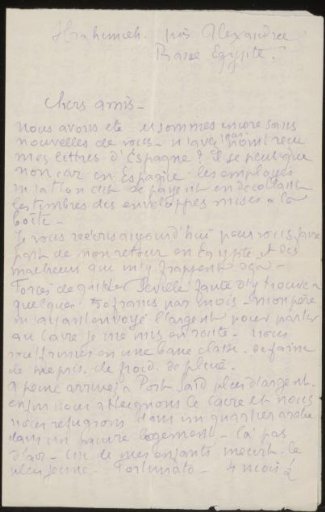 Ibrahimieh. près Alexandrie
Basse Egypte.
Chers amis -
nous avons été et sommes encore sans
nouvelles de vous - n'avez vous point reçu
mes lettres d'Espagne? Il se peut que
non car en Espagne les employés
se payent en décollant
les timbres des enveloppes mises à la
boîte -
Je vous récris aujourd'hui pour vous faire
part de mon retour en Egypte et des
malheurs que m'y frappent déjà -
Forcés de quitter Séville faute d'y trouver
quelques francs par mois - mon père
m'ayant envoyé l'argent pour partir
au Caire je me mis en route - nous
souffrimes en une classe de faim
de mépris de froid de pluie
A peine arrivés à Port Saïd plus d'argent
enfin nous atteignons le Caire et nous
nous réfugions dans un quartier arabe
dans un pauvre logement - là pas
d'air - un de mes enfants meurt, le
plus jeune - Fortunato - 4 mois à